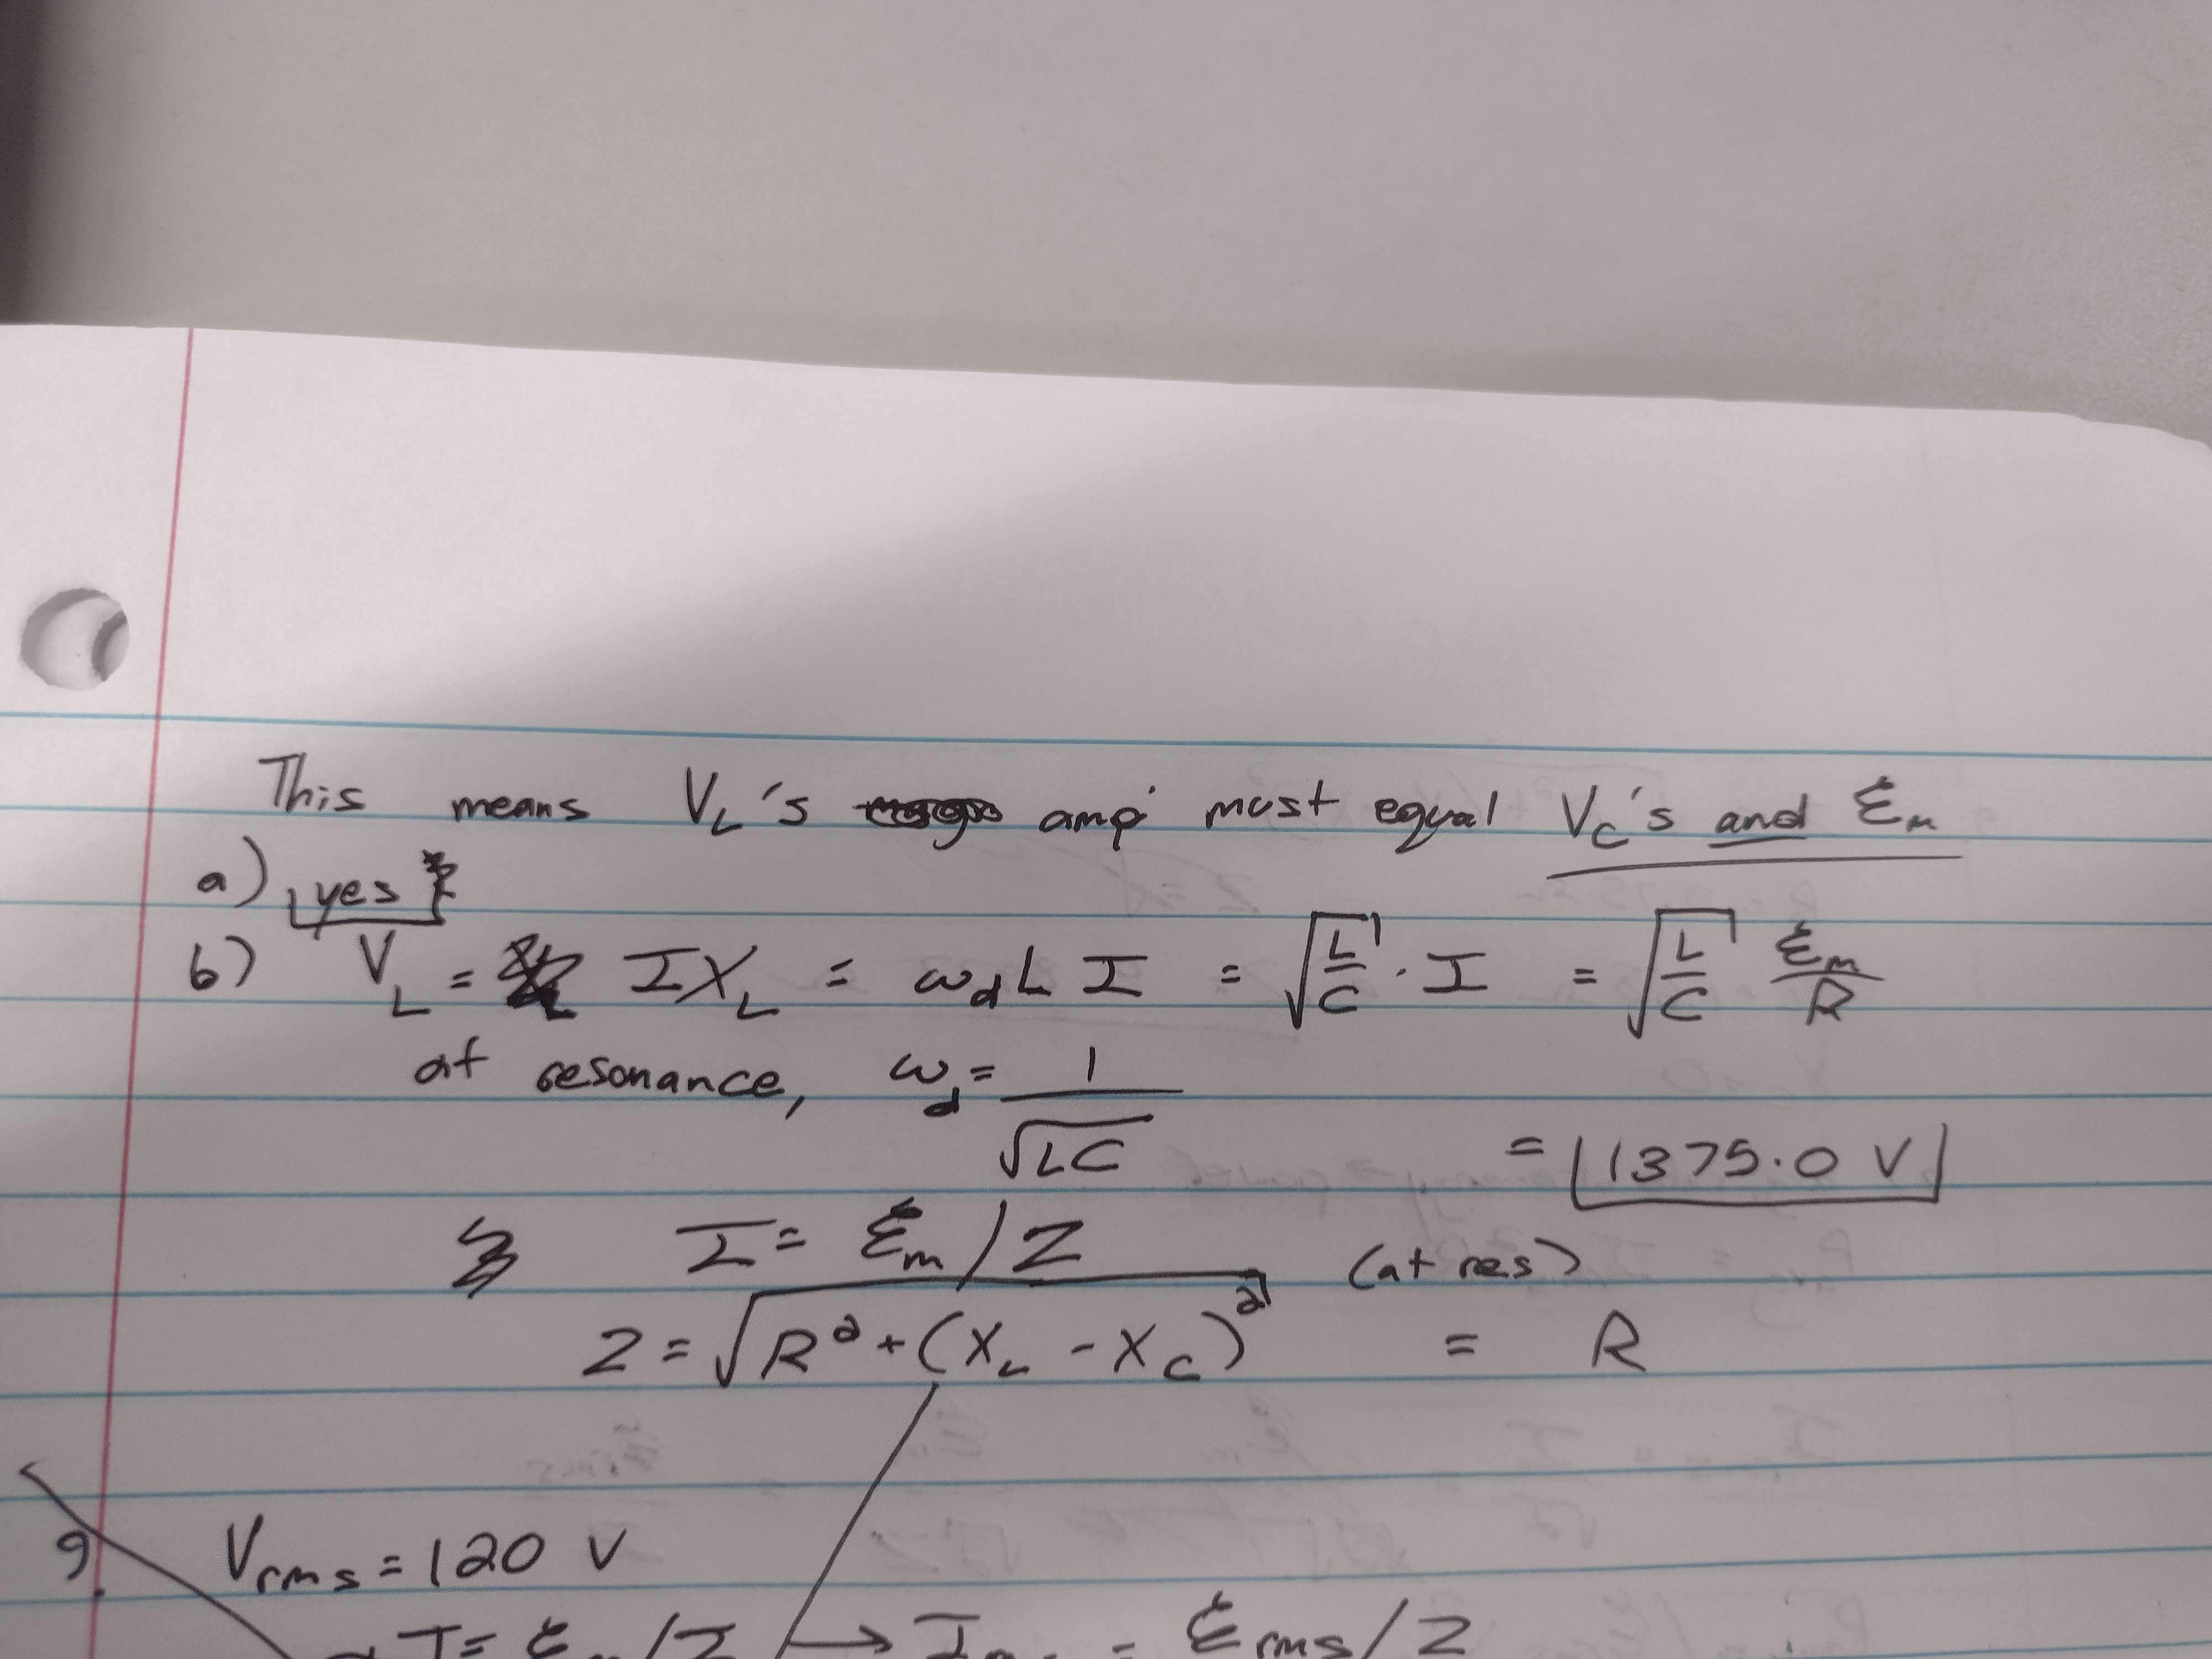 This means V_L's amp must equal V_C's and ℰ_m
a) yes
b) V_L = I X_L = ω_d L I = √(L/C) · I = √(L/C) ℰ_m/R
at resonance, ω_d = 1/√(LC)
= 1375.0 V
I = ℰ_m / Z (at res)
Z = √(R² + (X_L - X_C)²) = R
9. V_rms = 120 V
I = ℰ_m / Z → I = ℰ_rms / Z